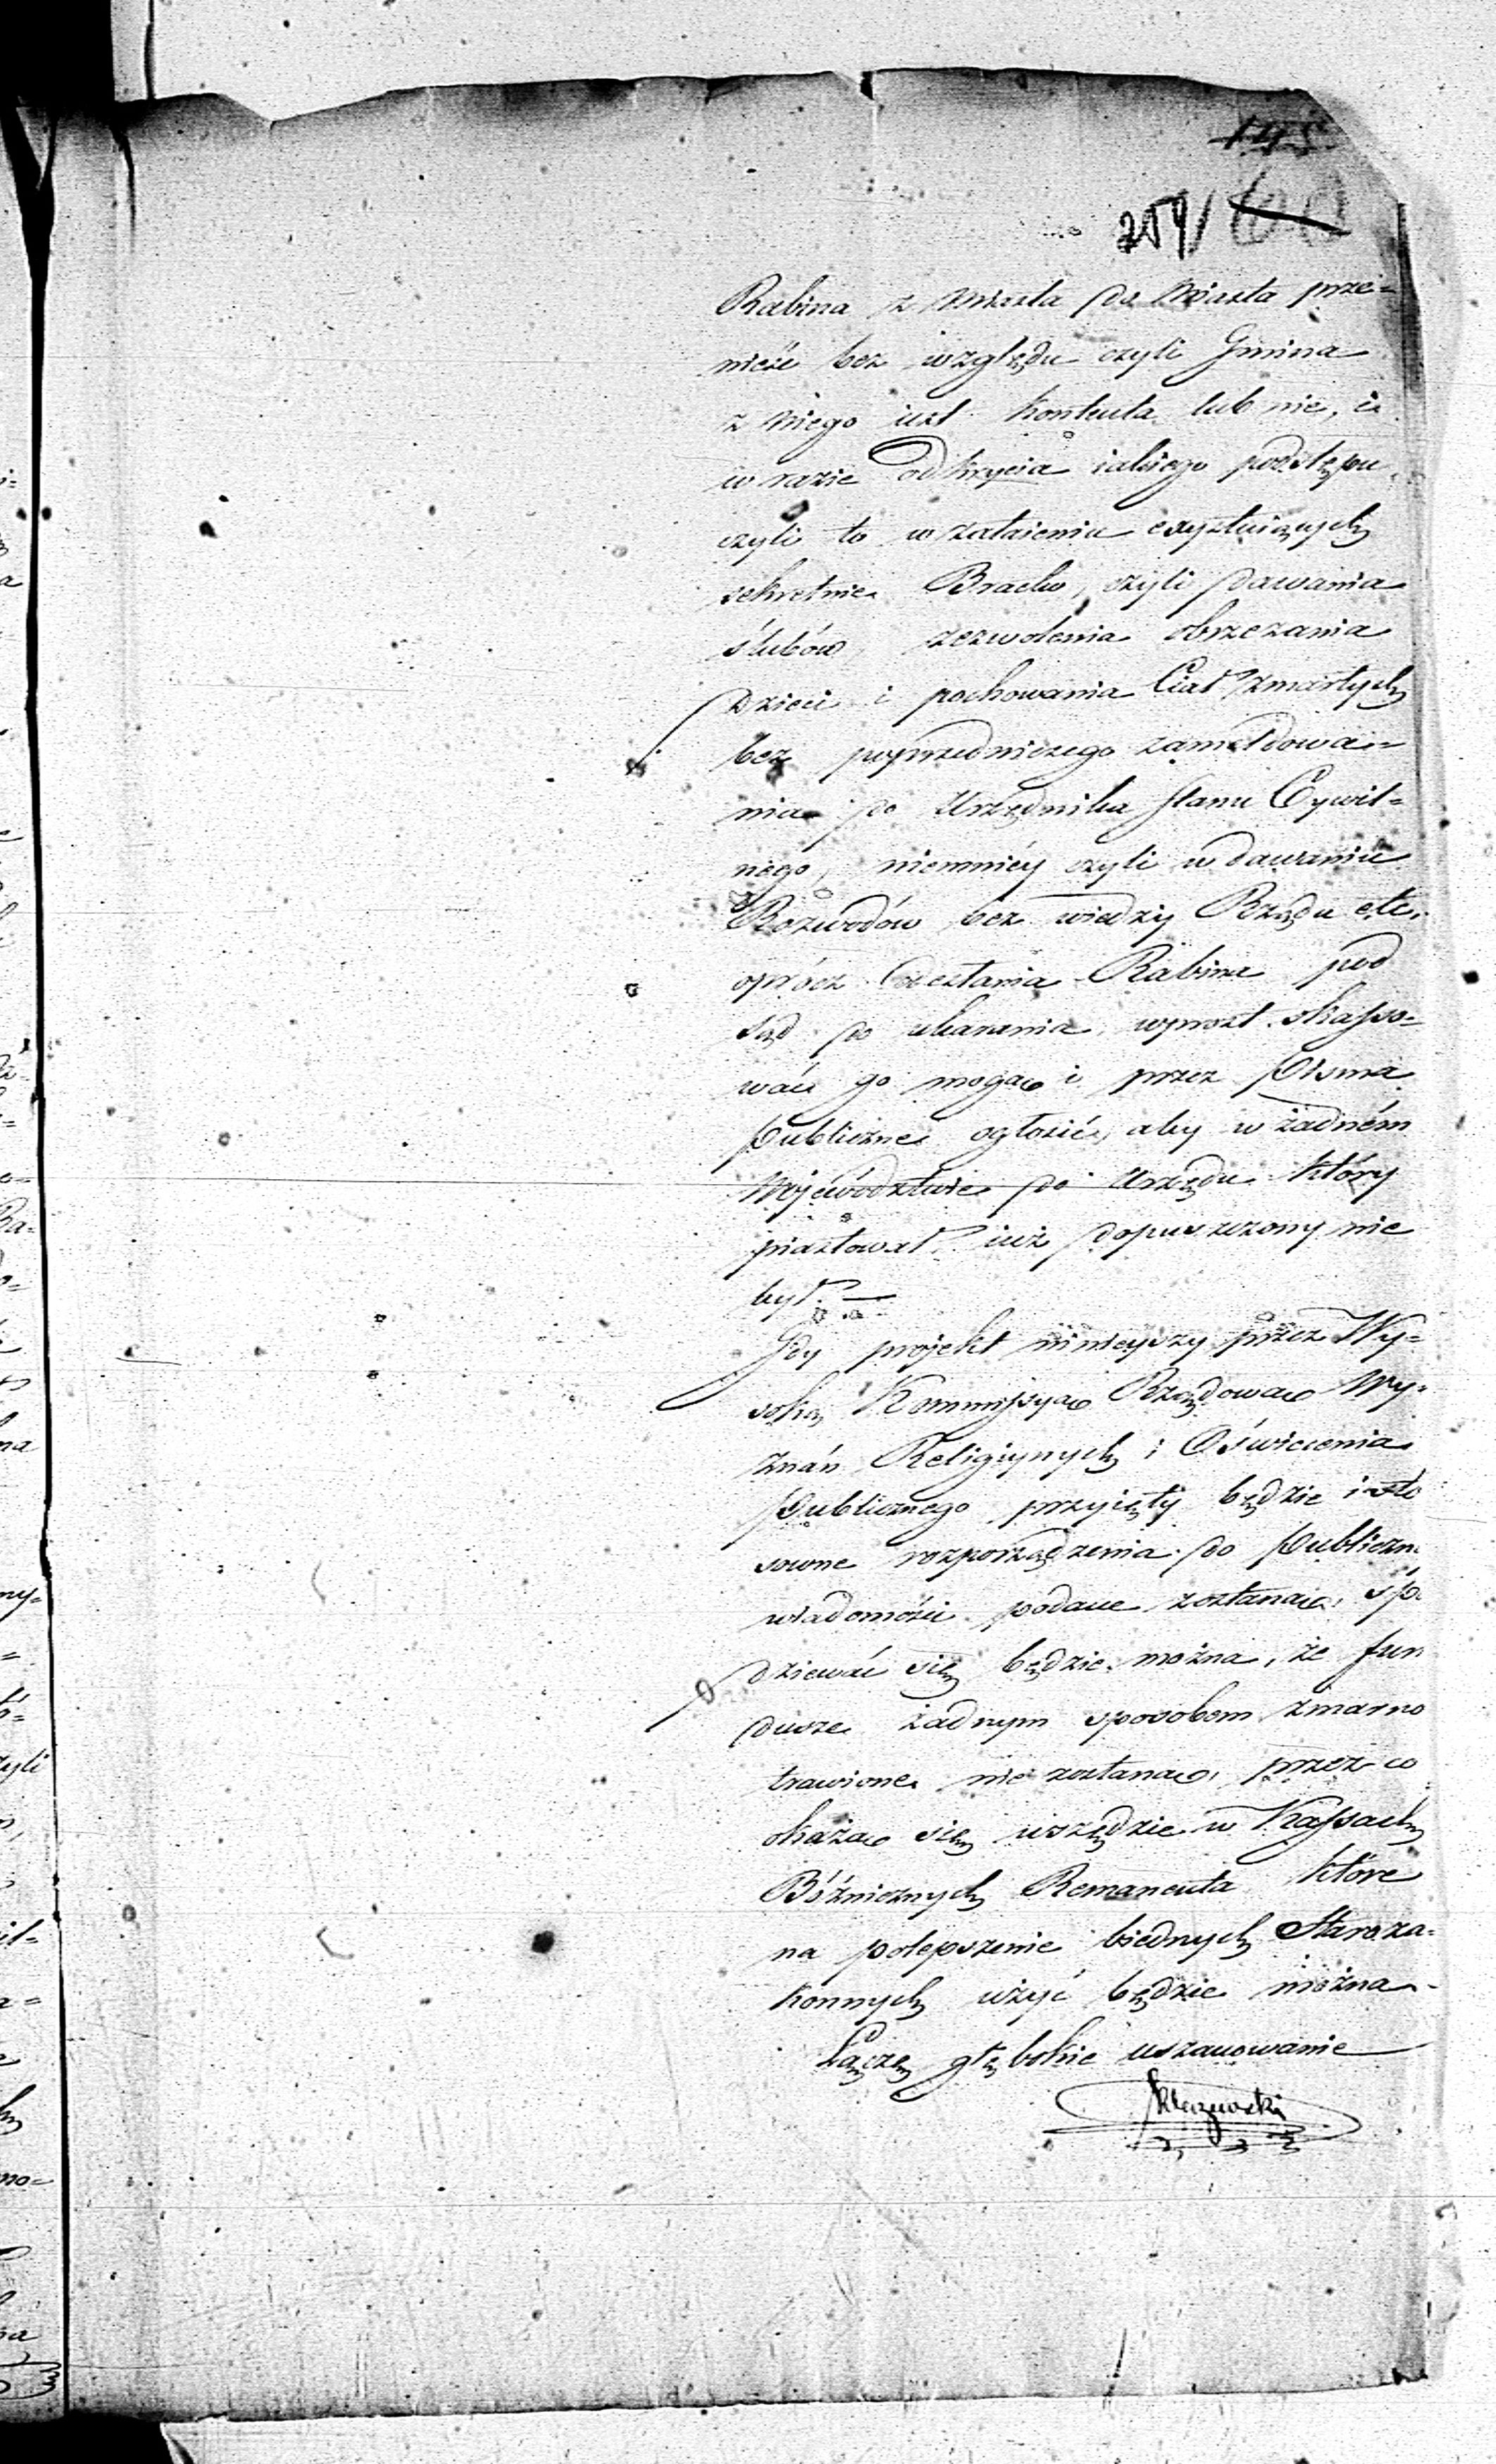 145
259/
Rabina z Miasta do Miasta prze=
nieść bez względu czyli Gmina
z niego iest kontenta lub nie, i
w razie odkrycia iakiego podstępu
czyli to w zataieniu exystuiących
sekretnie Bractw, czyli dawania
ślubów, zezwolenia obrzezania
Dzieci i pochowania Ciał zmarłych
bez poprzedniczego zameldowa=
nia do Urzędnika Stanu Cywil=
nego, niemniéy czyli w dawaniu
Rozwodów bez wiedzy Rządu etc.
oprócz oddania Rabina pod
Sąd do ukarania, wprost skasso=
wać go mogą i przez Pisma
Publiczne ogłosić, aby w żadném
Województwie do Urzędu który
piastował, iuż dopuszczony nie
był. —
Gdy projekt ninieyszy przez Wy=
soką Kommissyą Rządową Wy=
znań Religiynych i Oświecenia
Publicznego przyięty będzie i sto
sowne rozporządzenia do Publiczn
wiadomości podane zostaną, spo
dziewać się będzie można, że fun
dusze żadnym sposobem zmarno
trawione nie zostaną, przez co
okażą się wszędzie w Kassach
Bóżnicznych Remanenta które
na polepszenie biednych Staroza=
konnych użyć będzie można.
Łączę głębokie uszanowanie